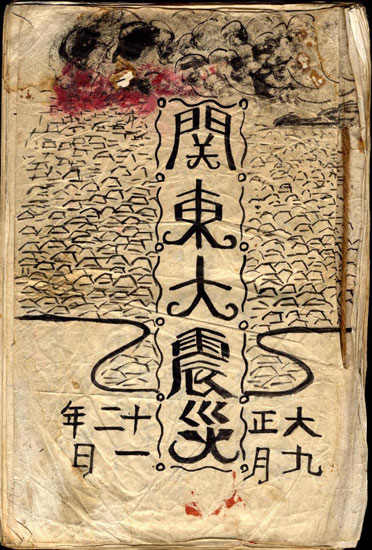 関東大震災
大正十二年
九月一日